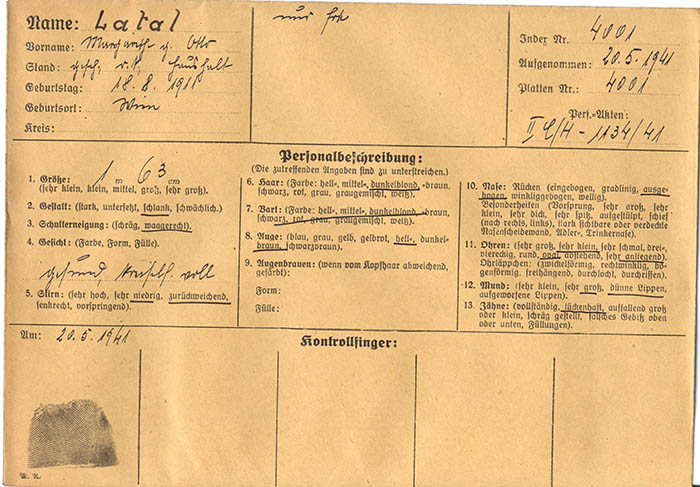 Name: Latal
Vorname: Margareth g. Otto
Stand: gesch., r.k., Haushalt
Geburtstag: 18.8.1911
Geburtsort: Wien
Kreis:
Index Nr. 4001
Aufgenommen: 20.5.1941
Platten Nr.: 4001
Pers.-Akten:
II C/H - 1134/41
Personalbeschreibung:
(Die zutreffenden Angaben sind zu unterstreichen.)
1. Größe: 1 m 63 cm
(sehr klein, klein, mittel, groß, sehr groß).
2. Gestalt: (stark, untersetzt, schlank, schwächlich.)
3. Schulterneigung: (schräg, waagerecht).
4. Gesicht: (Farbe, Form, Fülle).
gesund, voll
5. Stirn: (sehr hoch, sehr niedrig, zurückweichend,
senkrecht, vorspringend).
6. Haar: (Farbe: hell-, mittel-, dunkelblond, -braun,
schwarz, rot, grau, graugemischt, weiß).
7. Bart: (Farbe: hell-, mittel-, dunkelblond, -braun,
schwarz, rot, grau, graugemischt, weiß).
8. Auge: (blau, grau, gelb, gelbrot, hell-, dunkel-
braun, schwarzbraun).
9. Augenbrauen: (wenn vom Kopfhaar abweichend,
gefärbt):
Form:
Fülle:
10. Nase: Rücken (eingebogen, gradlinig, ausge-
bogen, winkliggebogen, wellig).
Besonderheiten (Vorsprung, sehr groß, sehr
klein, sehr dick, sehr spitz, aufgestülpt, schief
(nach rechts, links), stark sichtbare oder verdeckte
Nasenscheidewand, Adler-, Trinkernase).
11. Ohren: (sehr groß, sehr klein, sehr schmal, drei-,
viereckig, rund, oval, abstehend, sehr anliegend).
Ohrläppchen: (zwickelförmig, rechtwinklig, bo-
genförmig, freihängend, durchlocht, durchrissen).
12. Mund: (sehr klein, sehr groß, dünne Lippen,
aufgeworfene Lippen).
13. Zähne: (vollständig, lückenhaft, auffallend groß
oder klein, schräg gestellt, falsches Gebiß oben
oder unten, Füllungen).
Am: 20.5.1941
Kontrollfinger: